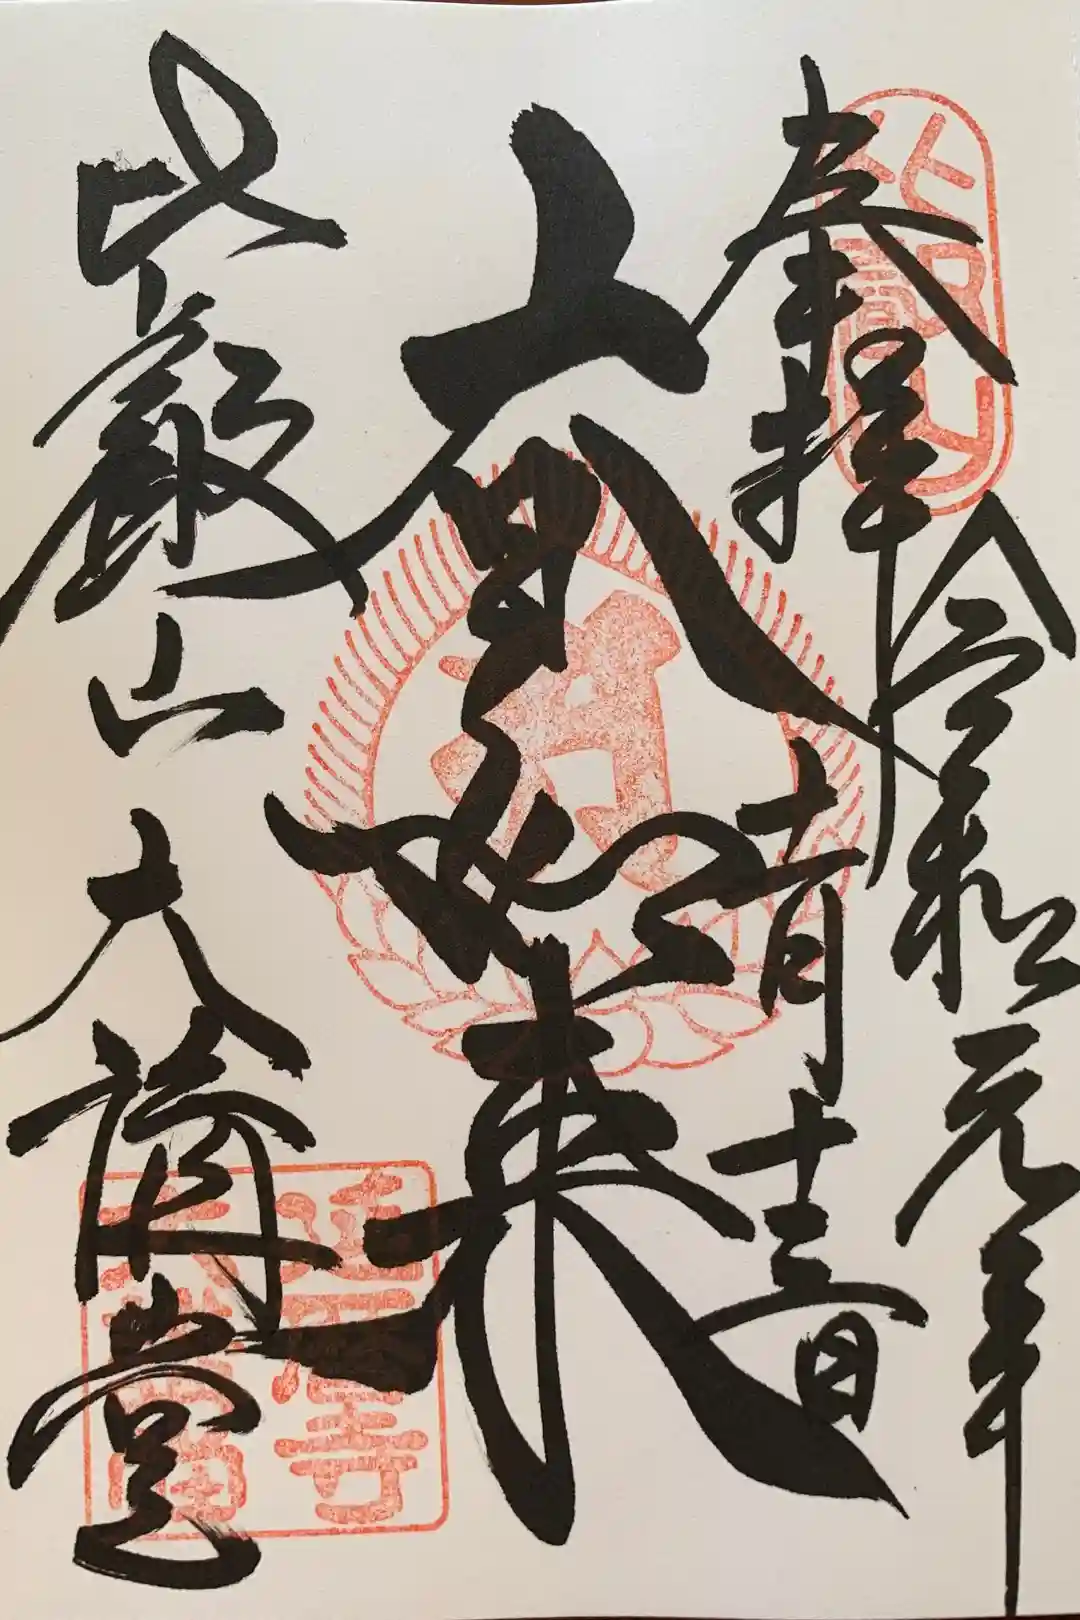 奉拝
令和元年
十一月十三日
大日如来
比叡山
大講堂
比叡山
延暦寺